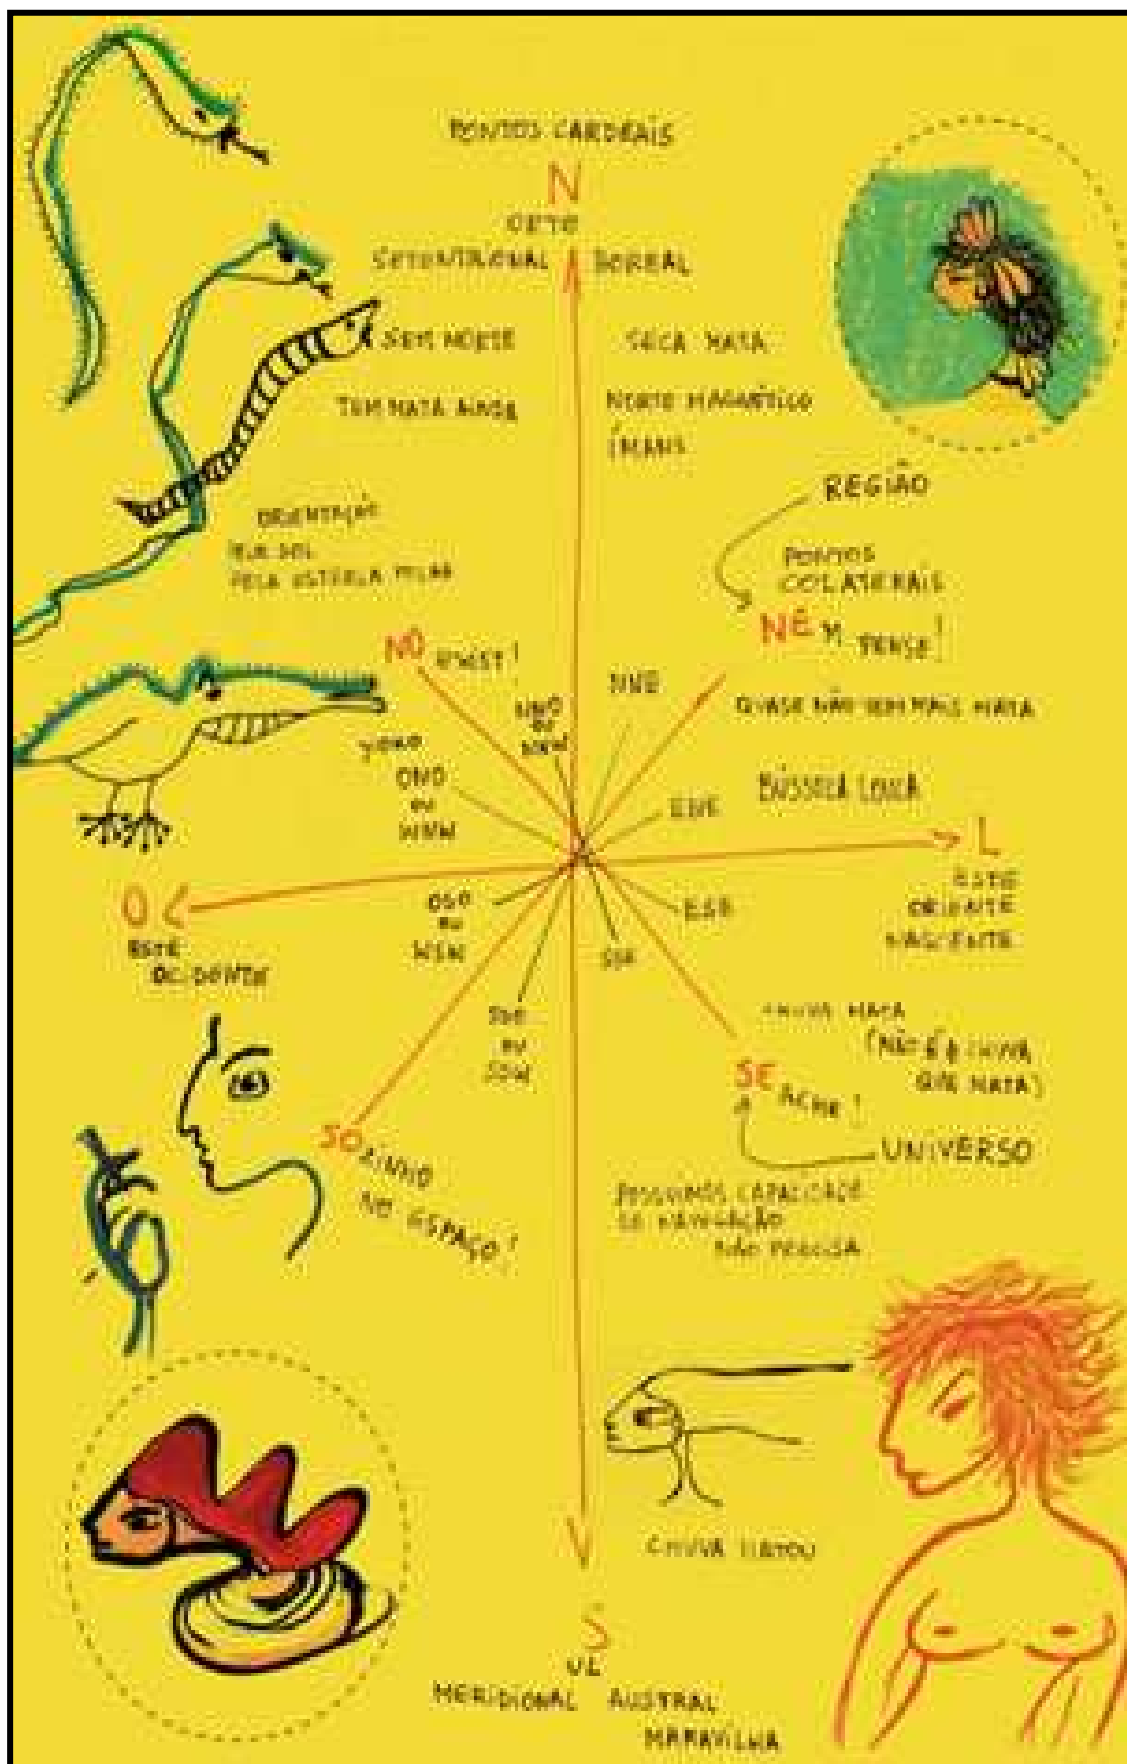 PONTOS CARDEAIS
N
SETENTRIONAL BOREAL
SEM NORTE
SECA MATA
TEM MATA AINDA
NORTE MAGNÉTICO
ÍMANS
REGIÃO
ORIENTAÇÃO
PELO SOL
PELA ESTRELA POLAR
PONTOS
COLATERAIS
NO EXIST!
NE M PENSE!
NNE
NNO
OU
NNW
QUASE NÃO TEM MAIS MATA
ONO
OU
WNW
BÚSSOLA LOUCA
ENE
L
ESTE
ORIENTE
NASCENTE
O
ESTE
OCIDENTE
OSO
OU
WSW
ESE
SSE
SSO
OU
SSW
CHUVA MATA
(NÃO É A CHUVA
QUE MATA)
SE ACHE!
UNIVERSO
SO ZINHO
NO ESPAÇO!
POSSUIMOS CAPACIDADE
DE NAVEGAÇÃO
NÃO PRECISA
CHUVA MATOU
S
UL
MERIDIONAL AUSTRAL
MARAVILHA